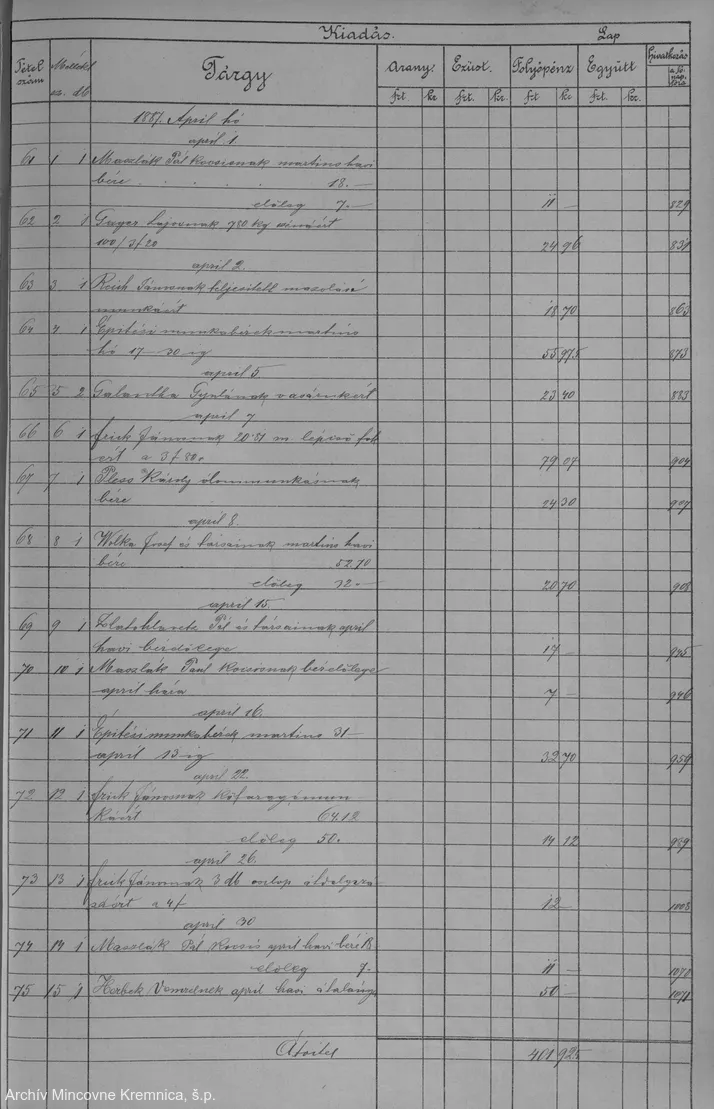 Kiadás. Lap
Tétel szám Mellékl. sz. db Tárgy Arany. Ezüst. Folyópénz Együtt Hivatkozás a fő naplóra
frt. kr frt. kr. frt kr frt. kr.
188 . April hó
april 1.
61 1 1 Maszlák Pál kocsisnak martius havi
bére 18.—
előleg 7.— 11 — 829
62 2 1 Lajosnak 780 kg
100/3/20 24 96 831
april 2.
63 3 1 Reich Jánosnak teljesitett mazolási
munkáért 18 70 863
64 4 1 Épitési munkabérek martius
hó 17–30-ig 55 97.5 873
april 5.
65 5 2 Galantha Gyulának 23 40 883
april 7
66 6 1 frick Jánosnak 20·81 m. lépcső fok
ért a 3 f 80 79 07 904
67 7 1 Pless Károly ólommunkásnak
bére 24 30 907
april 8.
68 8 1 Wolka Josef és társainak martius havi
bére 52.70
előleg 32.— 20 70 908
april 15.
69 9 1 Pál és társainak april
havi bérelőlege 17 — 945
70 10 1 Maszlák Paul kocsisnak bérelőlege
april hóra 7 — 946
april 16.
71 11 1 Épitési munkabérek martius 31—
april 13-ig 32 70 959
april 22
72 12 1 frick Jánosnak kőfaragó mun
káért 64.12
előleg 50. 14 12 989
april 26.
73 13 1 frick Jánosnak 3 db oszlop
a 4f 12 — 1008
april 30
74 14 1 Maszlák Pál kocsis april havi bére 18
előleg 7.— 11 — 1070
75 15 1 Herbek april havi átalány 50 — 1071
Átvitel 401 92.5
Archív Mincovne Kremnica, š.p.